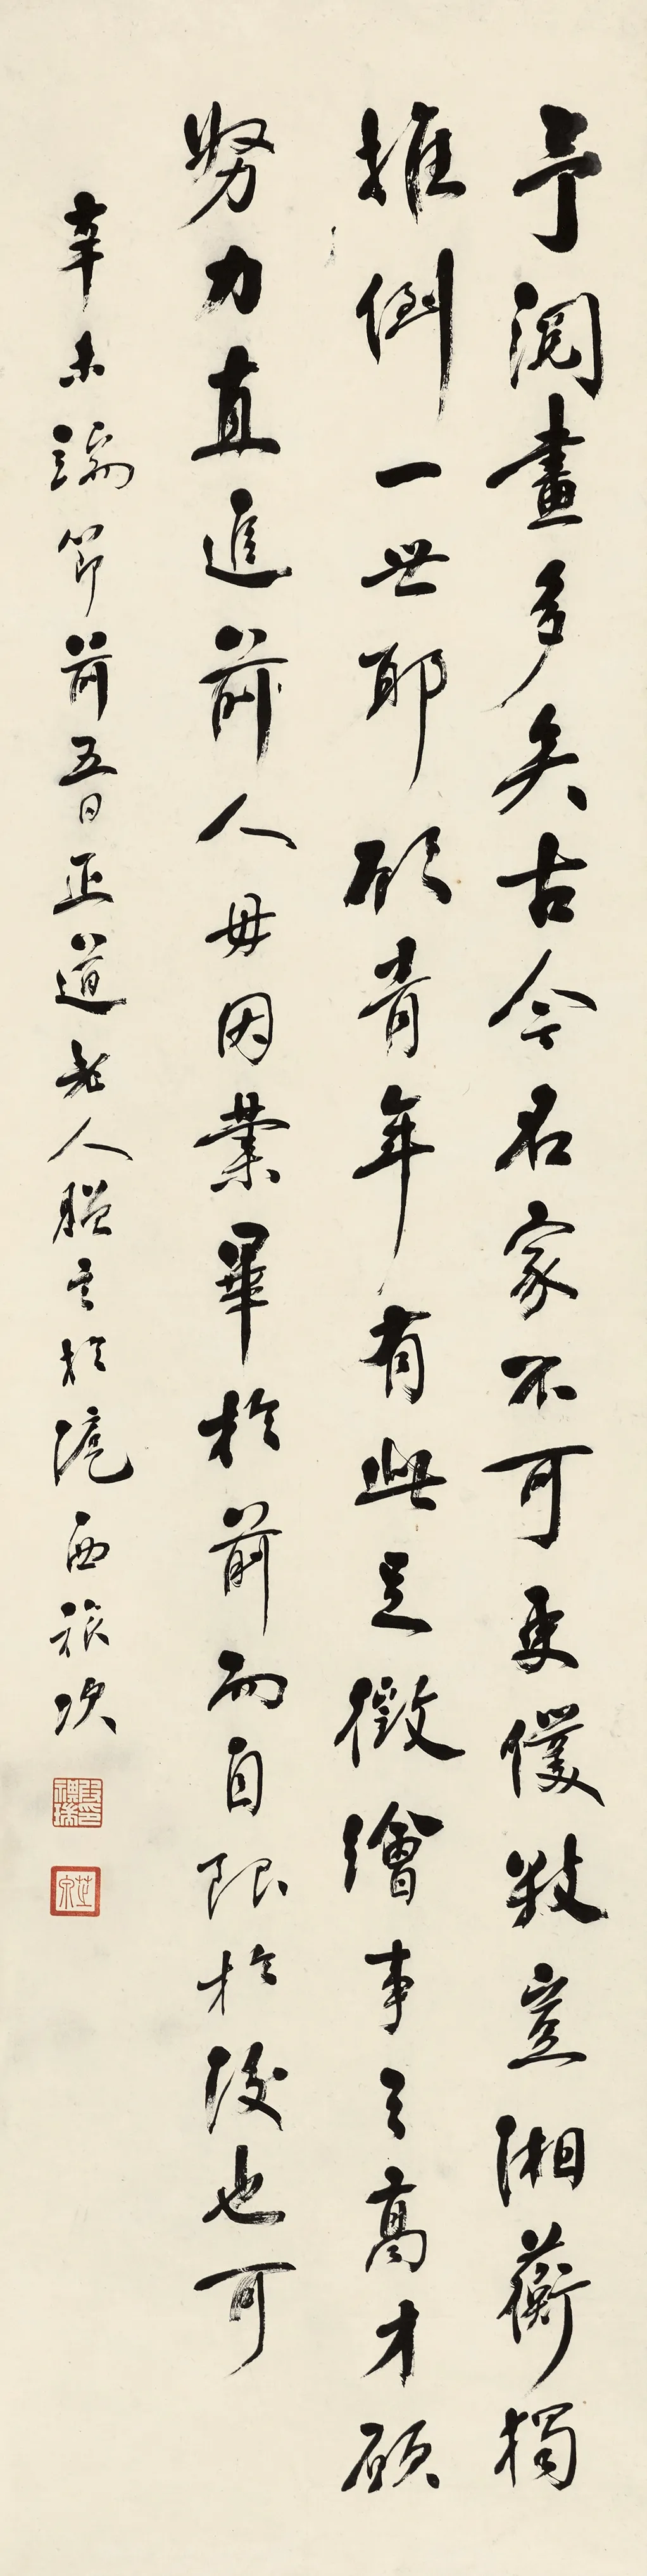 予閱畫多矣古今名家不可更僕數豈湘蘅獨
推倒一世耶顧青年有此足徵繪事之高才願
努力直追前人毋因業畢於前而自限於後也可
辛未端節前五日正道老人題之於滬西旅次